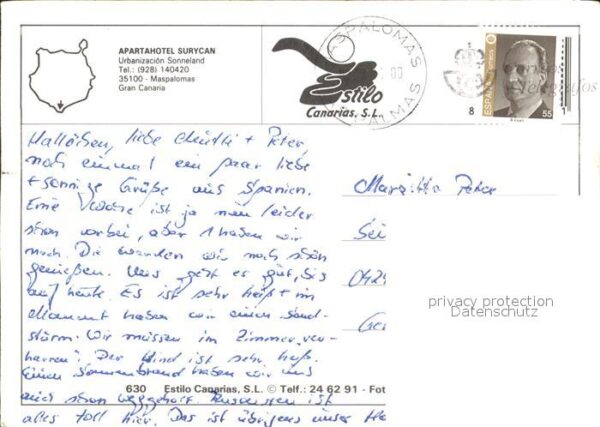 APARTAHOTEL SURYCAN
Urbanización Sonneland
Tel.: (928) 140420
35100 - Maspalomas
Gran Canaria
Estilo
Canarias, S.L.
MASPALOMAS
PALMAS
ESPAÑA
CORREOS
55
8
1
Hallöchen, liebe + Peter,
noch einmal ein paar liebe
+ sonnige Grüße aus Spanien.
Eine Woche ist ja nun leider
schon vorbei, aber 1 haben wir
noch. Die werden wir noch schön
genießen. Uns geht es gut, bis
auf heute. Es ist sehr heiß + im
Moment haben wir einen Sand-
sturm. Wir müssen im Zimmer ver-
harren! Der Wind ist sehr heiß.
Einen Sonnenbrand haben wir uns
auch schon weggeholt. Ansonsten ist
alles toll hier. Das ist übrigens unser
Peter
042
Ge
privacy protection
Datenschutz
630 Estilo Canarias, S.L. © Telf.: 24 62 91 - Fot